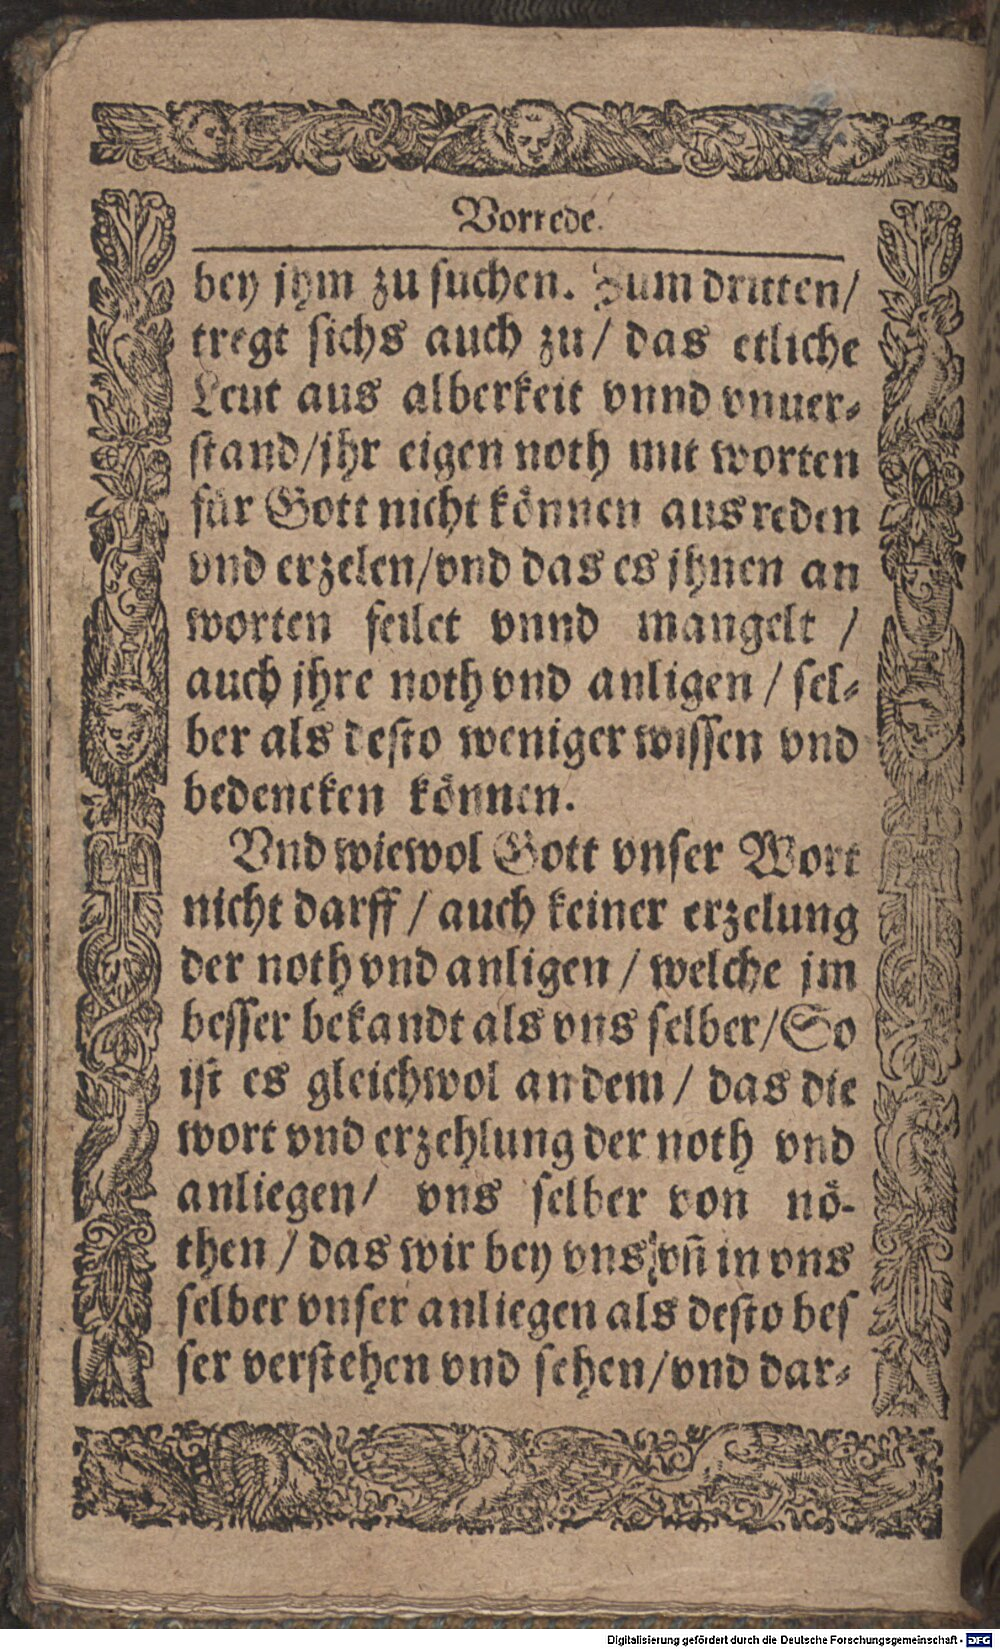 Vorrede.
bey jhm zu suchen. Zum dritten/
tregt sichs auch zu/ das etliche
Leut aus alberkeit vnnd vnuer-
stand/jhr eigen noth mit worten
für Gott nicht können ausreden
vnd erzelen/vnd das es jhnen an
worten feilet vnnd mangelt /
auch jhre noth vnd anligen / sel-
ber als desto weniger wissen vnd
bedencken können.
Vnd wiewol Gott vnser Wort
nicht darff / auch keiner erzelung
der noth vnd anligen / welche jm
besser bekandt als vns selber/So
ist es gleichwol an dem / das die
wort vnd erzehlung der noth vnd
anliegen/ vns selber von nö-
then / das wir bey vns/vñ in vns
selber vnser anliegen als desto bes
ser verstehen vnd sehen/vnd dar-
Digitalisierung gefördert durch die Deutsche Forschungsgemeinschaft - DFG